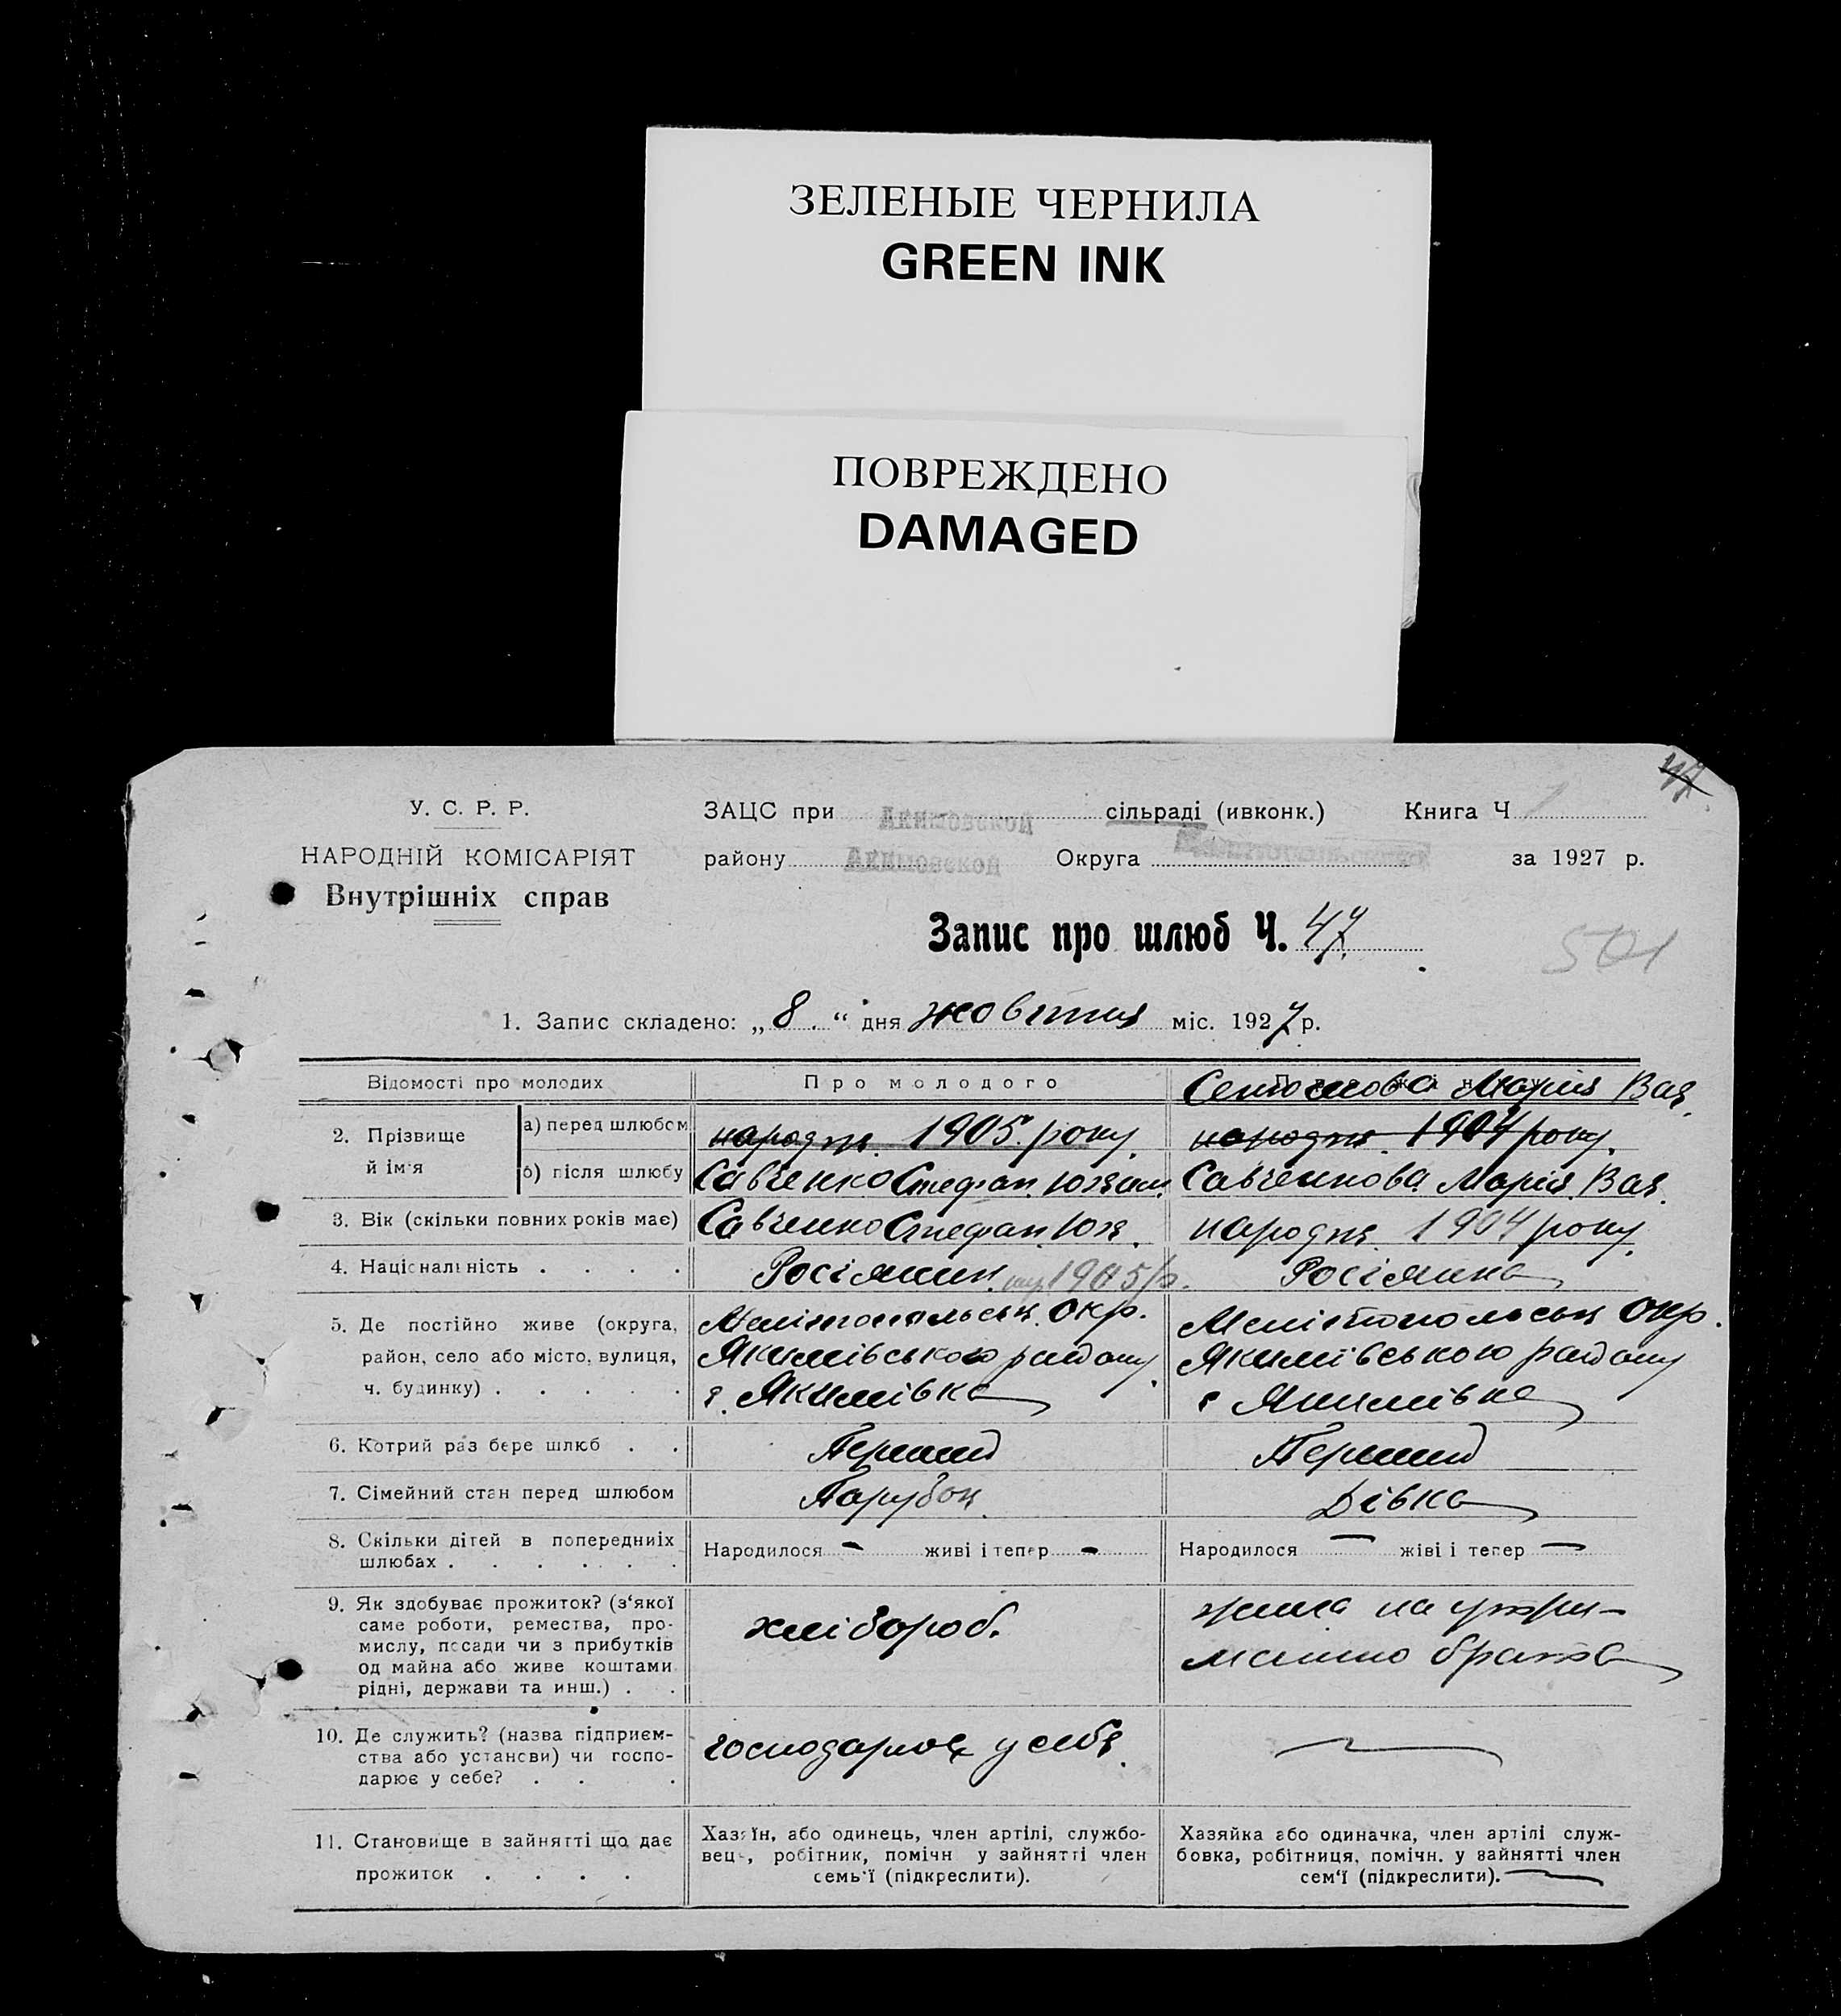 ЗЕЛЕНЫЕ ЧЕРНИЛА
GREEN INK
ПОВРЕЖДЕНО
DAMAGED
47
У. С. Р. Р.
НАРОДНІЙ КОМІСАРІЯТ
Внутрішніх справ
ЗАЦС при сільраді (ивконк.) Книга Ч 1
району Округа за 1927 р.
Запис про шлюб Ч. 47
501
1. Запис складено: „8“ дня жовтня міс. 1927 р.
Відомості про молодих
Про молодого
Марія Вас.
2. Прізвище й ім'я
а) перед шлюбом
народж. 1905 року.
народж. 1904 року.
б) після шлюбу
Савченко Стефан
Савченкова Марія Вас.
3. Вік (скільки повних років має)
Савченко Стефан
народж. 1904 року.
4. Національність . . . .
Росіянин 1905 р.
Росіянка
5. Де постійно живе (округа,
район, село або місто, вулиця,
ч. будинку) . . . . .
Мелітопольськ. Окр.
Якимівського району
с. Якимівка
Мелітопольськ Окр.
Якимівського району
с Якимівка
6. Котрий раз бере шлюб . .
Перший
Перший
7. Сімейний стан перед шлюбом
Парубок
Дівка
8. Скільки дітей в попередніх
шлюбах . . . . . .
Народилося - живі і тепер -
Народилося — жіві і тепер —
9. Як здобуває прожиток? (з'якої
саме роботи, ремества, про-
мислу, посади чи з прибутків
од майна або живе коштами
рідні, держави та инш.) . .
хлібороб.
жила на утри-
манню брата
10. Де служить? (назва підприєм-
ства або установи) чи госпо-
дарює у себе? . . .
господарює у себе.
11. Становище в зайнятті що дає
прожиток . . . .
Хазяїн, або одинець, член артілі, службо-
вець, робітник, помічн у зайнятті член
семь'ї (підкреслити).
Хазяйка або одиначка, член артілі служ-
бовка, робітниця, помічн. у зайнятті член
сем'ї (підкреслити).